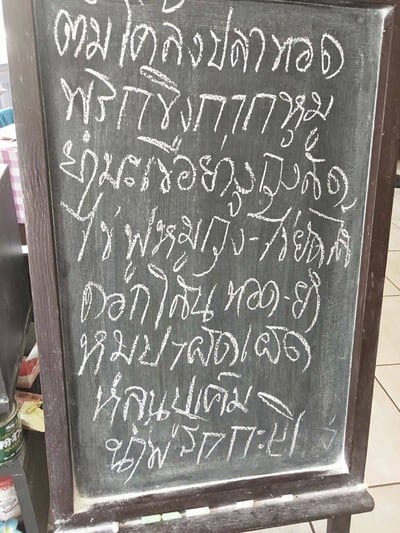 ต้มโคล้งปลาทอด
พริกขิงกากหมู
ยำมะเขือยาวกุ้งสด
ไข่ฟูหมูกุ้ง-ไข่ยัดไส้
ดอกโสน ทอด-ยำ
หมูป่าผัดเผ็ด
หลนปูเค็ม
น้ำพริกกะปิ